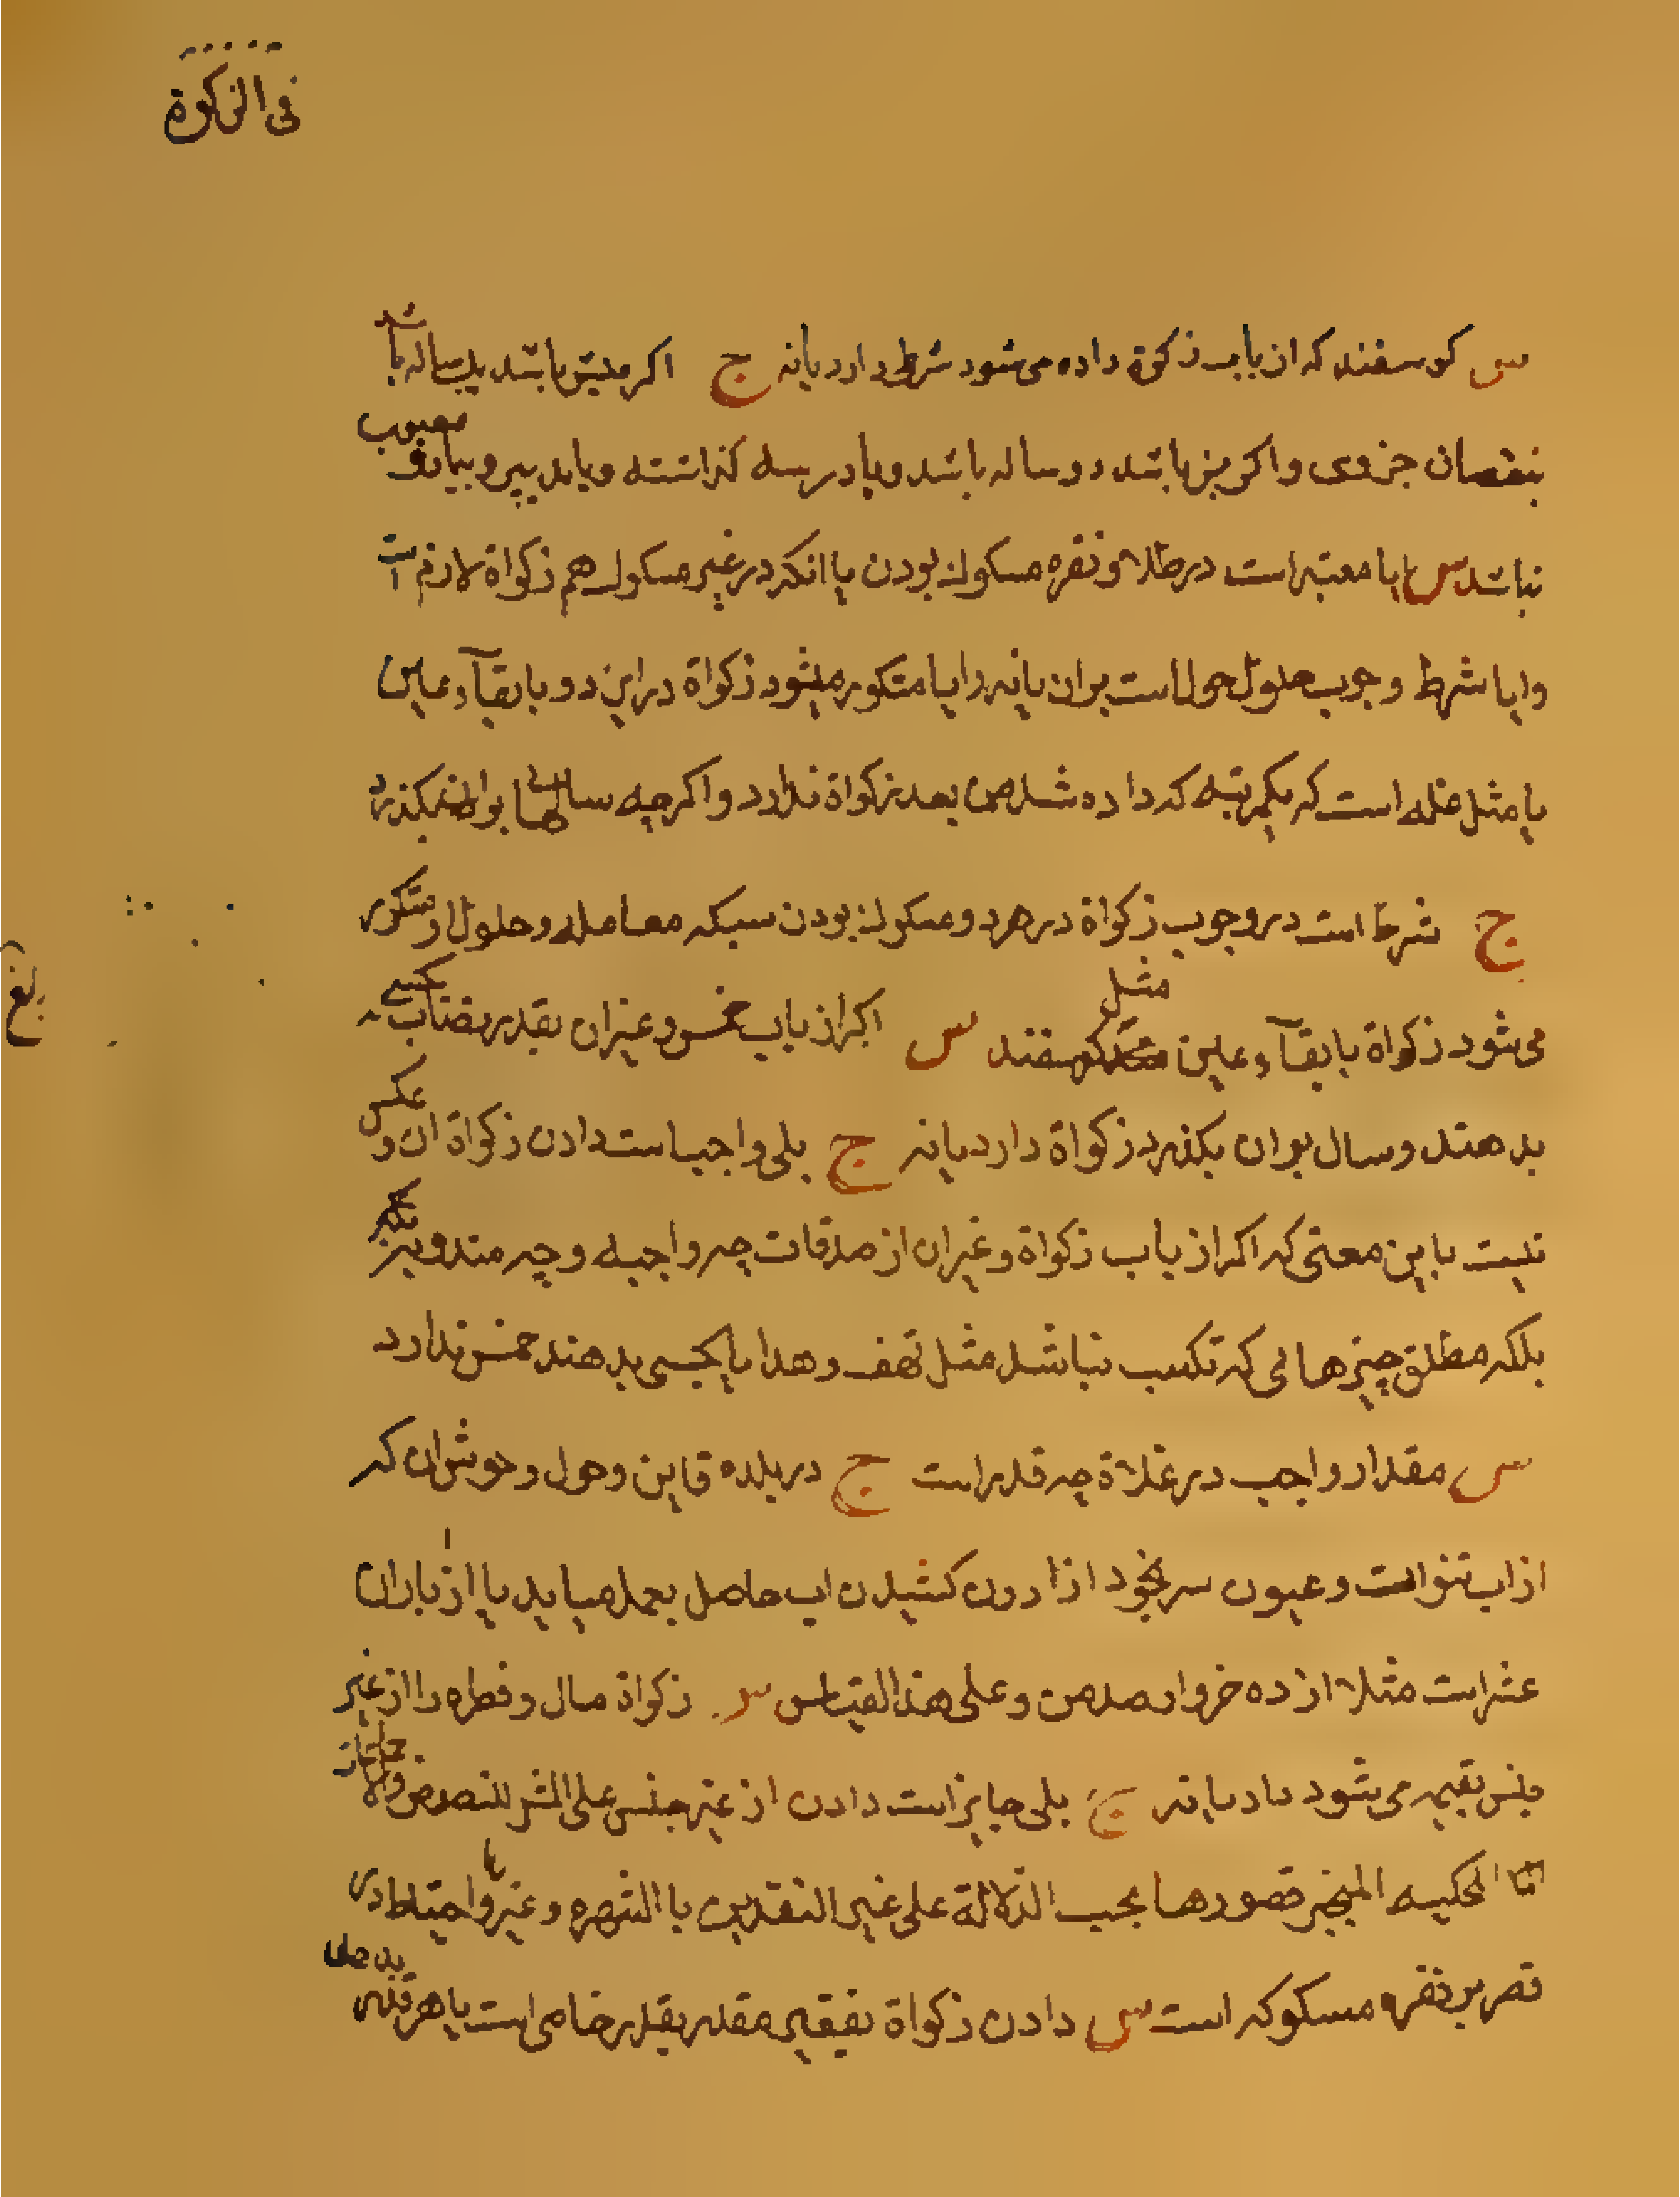 فی الزکوة
س کوسفند که از باب زکوة داده می شود شرط دارد یا نه ج اکر میش باشد یکساله باشد
بنقصان جزوی و اکر بز باشد دوساله باشد و پا در سه کذاشته و باید پیر و بیمار و معیوب
نباشد س ایا معتبر است در طلا و نقره مسکوک بودن یا انکه در غیر مسکوک هم زکواة لازم است
و ایا شرط وجوب حلول حول است بر ان یا نه و ایا متکرر میشود زکواة در این دو با بقآء عین
یا مثل غله است که یکمرتبه که داده شد من بعد زکواة ندارد و اکرچه سالهای بر ان بکذرد
ج شرط است در وجوب زکواة در هر دو مسکوک بودن بسکه معامله و حلول و متکرر
می شود زکواة با بقآء عین مثل کوسفند س اکر از باب خمس و غیر ان بقدر نصاب بکسی
بدهند و سال بر ان بکذرد زکواة دارد یا نه ج بلی واجب است دادن زکواة ان و عکس
نیست باین معنی که اکر از باب زکواة و غیر ان از صدقات چه واجبه و چه مندوبه
بلکه مطلق چیزهائی که تکسب نباشد مثل تحف و هدایا بکسی بدهند خمس ندارد
س مقدار واجب در غلاة چه قدر است ج در بلده قاین و حول و حوش ان که
از اب قنوات و عیون سر بخود از ا درون کشیدن اب حاصل بعمل میاید یا از باران
عشر است مثلا از ده خروار صد من و علی هذا القیاس س زکواة مال و فطره را از غیر
جنس بقیمه می شود داد یا نه ج بلی جایز است دادن از غیر جنس علی المش للنصوص والاجماعات
المحکیه المنجبر قصورها بحسب الدلالة علی غیر النقدین با الشهره و غیرها و احتیاط در
قصر بر نقره مسکوکه است س دادن زکواة بفقیر مقدر بقدر خاصی است یا هر قدر بدهد